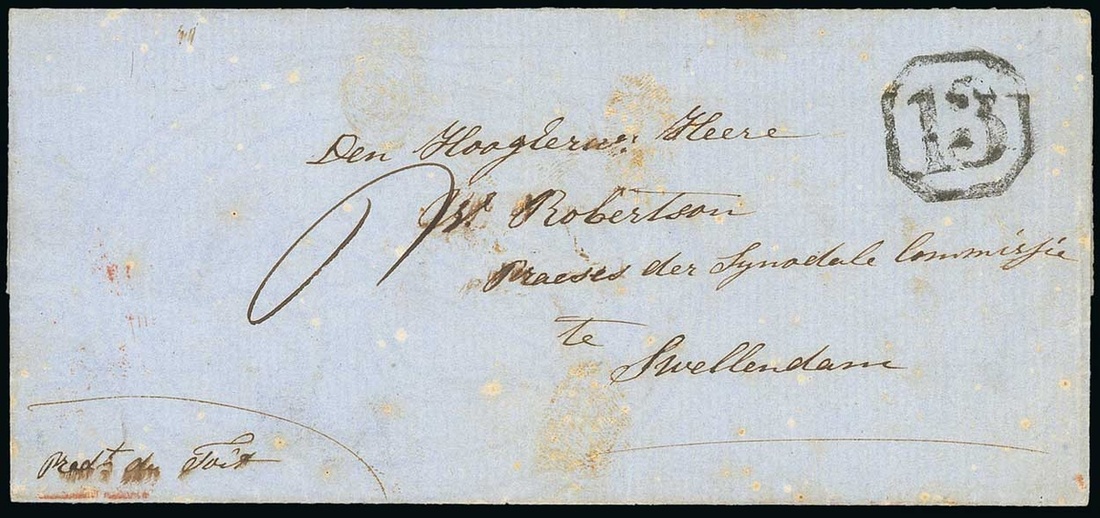 13
Den Hooglerw: Heere
Dr. Robertson
Praeses der Synodale Commissie
te
Swellendam
Predt. du Toit